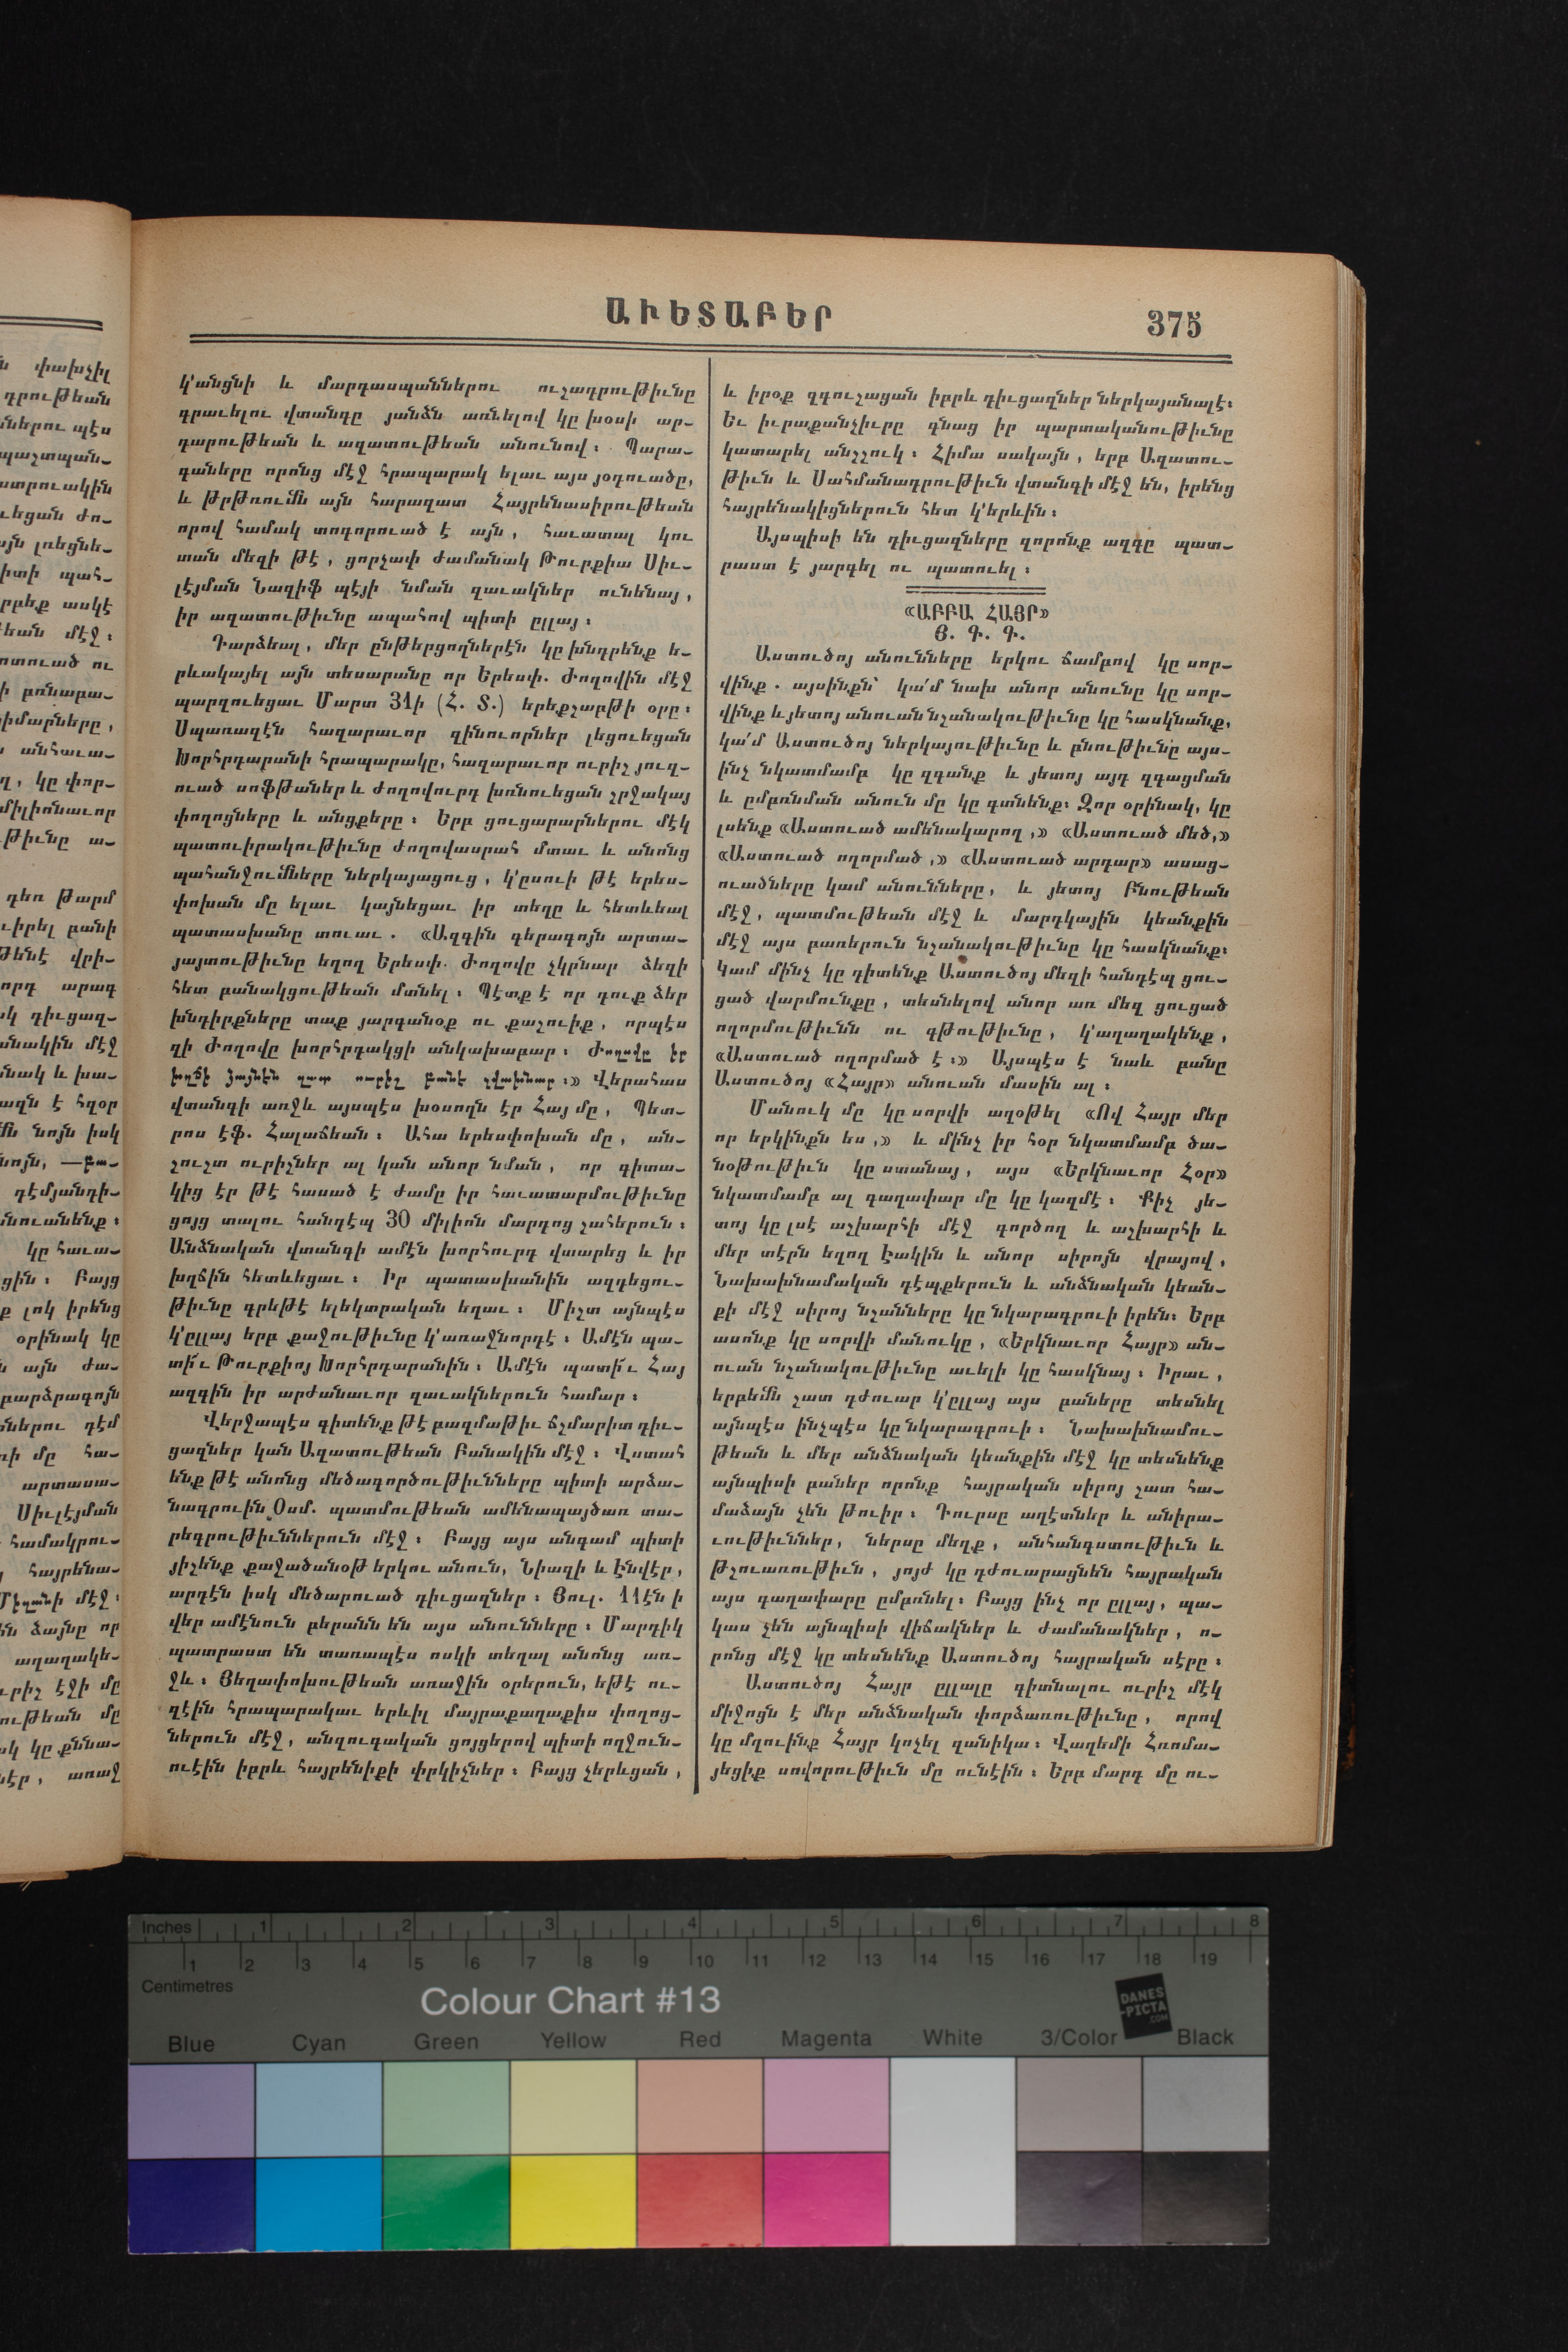 ԱՒԵՏԱԲԵՐ
375
կ'անցնի և մարդասպաններու ուշադրութիւնը
գրաւելու վտանգը յանձն առնելով կը խօսի ար–
դարութեան և ազատութեան անունով։ Պարա–
գաները որոնց մէջ հրապարակ ելաւ այս յօդուածը,
և թրթռումն այն հարազատ Հայրենասիրութեան
որով համակ տոգորուած է այն, հաւատալ կու
տան մեզի թէ, ցորչափ ժամանակ Թուրքիա Սիւ–
լէյման Նազիֆ պէյի նման զաւակներ ունենայ,
իր ազատութիւնը ապահով պիտի ըլլայ։
Դարձեալ, մեր ընթերցողներէն կը խնդրենք ե–
րևակայել այն տեսարանը որ Երեսփ. Ժողովին մէջ
պարզուեցաւ Մարտ 31ի (Հ. Տ.) երեքշաբթի օրը։
Սպառազէն հազարաւոր զինուորներ լեցուեցան
Խորհրդարանի հրապարակը, հազարաւոր ուրիշ յուզ–
ուած սոֆթաներ և ժողովուրդ խռնուեցան շրջակայ
փողոցները և անցքերը։ Երբ ցուցարարներու մէկ
պատուիրակութիւնը ժողովասրահ մտաւ և անոնց
պահանջումները ներկայացուց, կ'ըսուի թէ երես–
փոխան մը ելաւ կայնեցաւ իր տեղը և հետևեալ
պատասխանը տուաւ. «Ազգին գերագոյն արտա–
յայտութիւնը եղող Երեսփ. Ժողովը չկրնար ձեզի
հետ բանակցութեան մտնել։ Պէտք է որ դուք ձեր
խնդիրքները տաք յարգանօք ու քաշուիք, որպէս
զի Ժողովը խորհրդակցի անկախաբար։ Ժողովը իր
խղճի ձայնէն զատ ուրիշ բանէ չվախնար։» Վերահաս
վտանգի առջև այսպէս խօսողն էր Հայ մը, Պետ–
րոս էֆ. Հալաճեան։ Ահա երեսփոխան մը, ան–
շուշտ ուրիշներ ալ կան անոր նման, որ գիտա–
կից էր թէ հասած է ժամը իր հաւատարմութիւնը
ցոյց տալու հանդէպ 30 միլիոն մարդոց շահերուն։
Անձնական վտանգի ամէն խորհուրդ վտարեց և իր
խղճին հետևեցաւ։ Իր պատասխանին ազդեցու–
թիւնը գրեթէ ելեկտրական եղաւ։ Միշտ այնպէս
կ'ըլլայ երբ քաջութիւնը կ'առաջնորդէ։ Ամէն պա–
տի՜ւ Թուրքիոյ Խորհրդարանին։ Ամէն պատի՜ւ Հայ
ազգին իր արժանաւոր զաւակներուն համար։
Վերջապէս գիտենք թէ բազմաթիւ ճշմարիտ դիւ–
ցազներ կան Ազատութեան Բանակին մէջ։ Վստահ
ենք թէ անոնց մեծագործութիւնները պիտի արձա–
նագրուին Օսմ. պատմութեան ամենապայծառ տա–
րեգրութիւններուն մէջ։ Բայց այս անգամ պիտի
յիշենք քաջածանօթ երկու անուն, Նիազի և Էնվէր,
արդէն իսկ մեծարուած դիւցազներ։ Յուլ. 11էն ի
վեր ամէնուն բերանն են այս անունները։ Մարդիկ
պատրաստ են տառապէս ոսկի տեղալ անոնց առ–
ջև։ Յեղափոխութեան առաջին օրերուն, եթէ ու–
զէին հրապարակաւ երևիլ մայրաքաղաքիս փողոց–
ներուն մէջ, անզուգական ցոյցերով պիտի ողջուն–
ուէին իբրև հայրենիքի փրկիչներ։ Բայց չերևցան,
և իրօք զգուշացան իբրև դիւցազներ ներկայանալէ։
Եւ իւրաքանչիւրը գնաց իր պարտականութիւնը
կատարել անշշուկ։ Հիմա սակայն, երբ Ազատու–
թիւն և Սահմանադրութիւն վտանգի մէջ են, իրենց
հայրենակիցներուն հետ կ'երևին։
Այսպիսի են դիւցազները զորոնք ազգը պատ–
րաստ է յարգել ու պատուել։
«ԱԲԲԱ ՀԱՅՐ»
Յ. Գ. Գ.
Աստուծոյ անունները երկու ճամբով կը սոր–
վինք. այսինքն՝ կա՛մ նախ անոր անունը կը սոր–
վինք և յետոյ անուան նշանակութիւնը կը հասկնանք,
կա՛մ Աստուծոյ ներկայութիւնը և բնութիւնը այս–
ինչ նկատմամբ կը զգանք և յետոյ այդ զգացման
և ըմբռնման անուն մը կը գտնենք։ Զոր օրինակ, կը
լսենք «Աստուած ամենակարող,» «Աստուած մեծ,»
«Աստուած ողորմած,» «Աստուած արդար» ասաց–
ուածները կամ անունները, և յետոյ Բնութեան
մէջ, պատմութեան մէջ և մարդկային կեանքին
մէջ այս բառերուն նշանակութիւնը կը հասկնանք։
Կամ մինչ կը դիտենք Աստուծոյ մեզի հանդէպ ցու–
ցած վարմունքը, տեսնելով անոր առ մեզ ցուցած
ողորմութիւնն ու գթութիւնը, կ'աղաղակենք,
«Աստուած ողորմած է։» Այսպէս է նաև բանը
Աստուծոյ «Հայր» անուան մասին ալ։
Մանուկ մը կը սորվի աղօթել «Ով Հայր մեր
որ երկինքն ես,» և մինչ իր հօր նկատմամբ ծա–
նօթութիւն կը ստանայ, այս «Երկնաւոր Հօր»
նկատմամբ ալ գաղափար մը կը կազմէ։ Քիչ յե–
տոյ կը լսէ աշխարհի մէջ գործող և աշխարհի և
մեր տէրն եղող Էակին և անոր սիրոյն վրայով,
Նախախնամական դէպքերուն և անձնական կեան–
քի մէջ սիրոյ նշանները կը նկարագրուի իրեն։ Երբ
ասոնք կը սորվի մանուկը, «Երկնաւոր Հայր» ան–
ուան նշանակութիւնը աւելի կը հասկնայ։ Իրաւ,
երբեմն շատ դժուար կ'ըլլայ այս բաները տեսնել
այնպէս ինչպէս կը նկարագրուի։ Նախախնամու–
թեան և մեր անձնական կեանքին մէջ կը տեսնենք
այնպիսի բաներ որոնք հայրական սիրոյ շատ հա–
մաձայն չեն թուիր։ Դուրսը աղէտներ և անիրա–
ւութիւններ, ներսը մեղք, անհանգստութիւն և
թշուառութիւն, յոյժ կը դժուարացնեն հայրական
այս գաղափարը ըմբռնել։ Բայց ինչ որ ըլլայ, պա–
կաս չեն այնպիսի վիճակներ և ժամանակներ, ո–
րոնց մէջ կը տեսնենք Աստուծոյ հայրական սէրը։
Աստուծոյ Հայր ըլլալը գիտնալու ուրիշ մէկ
միջոցն է մեր անձնական փորձառութիւնը, որով
կը մղուինք Հայր կոչել զանիկա։ Վաղեմի Հռոմա–
յեցիք սովորութիւն մը ունէին։ Երբ մարդ մը ու–
Inches 1 2 3 4 5 6 7 8
1 2 3 4 5 6 7 8 9 10 11 12 13 14 15 16 17 18 19
Centimetres
Colour Chart #13
DANES
-PICTA
.COM
Blue Cyan Green Yellow Red Magenta White 3/Color Black